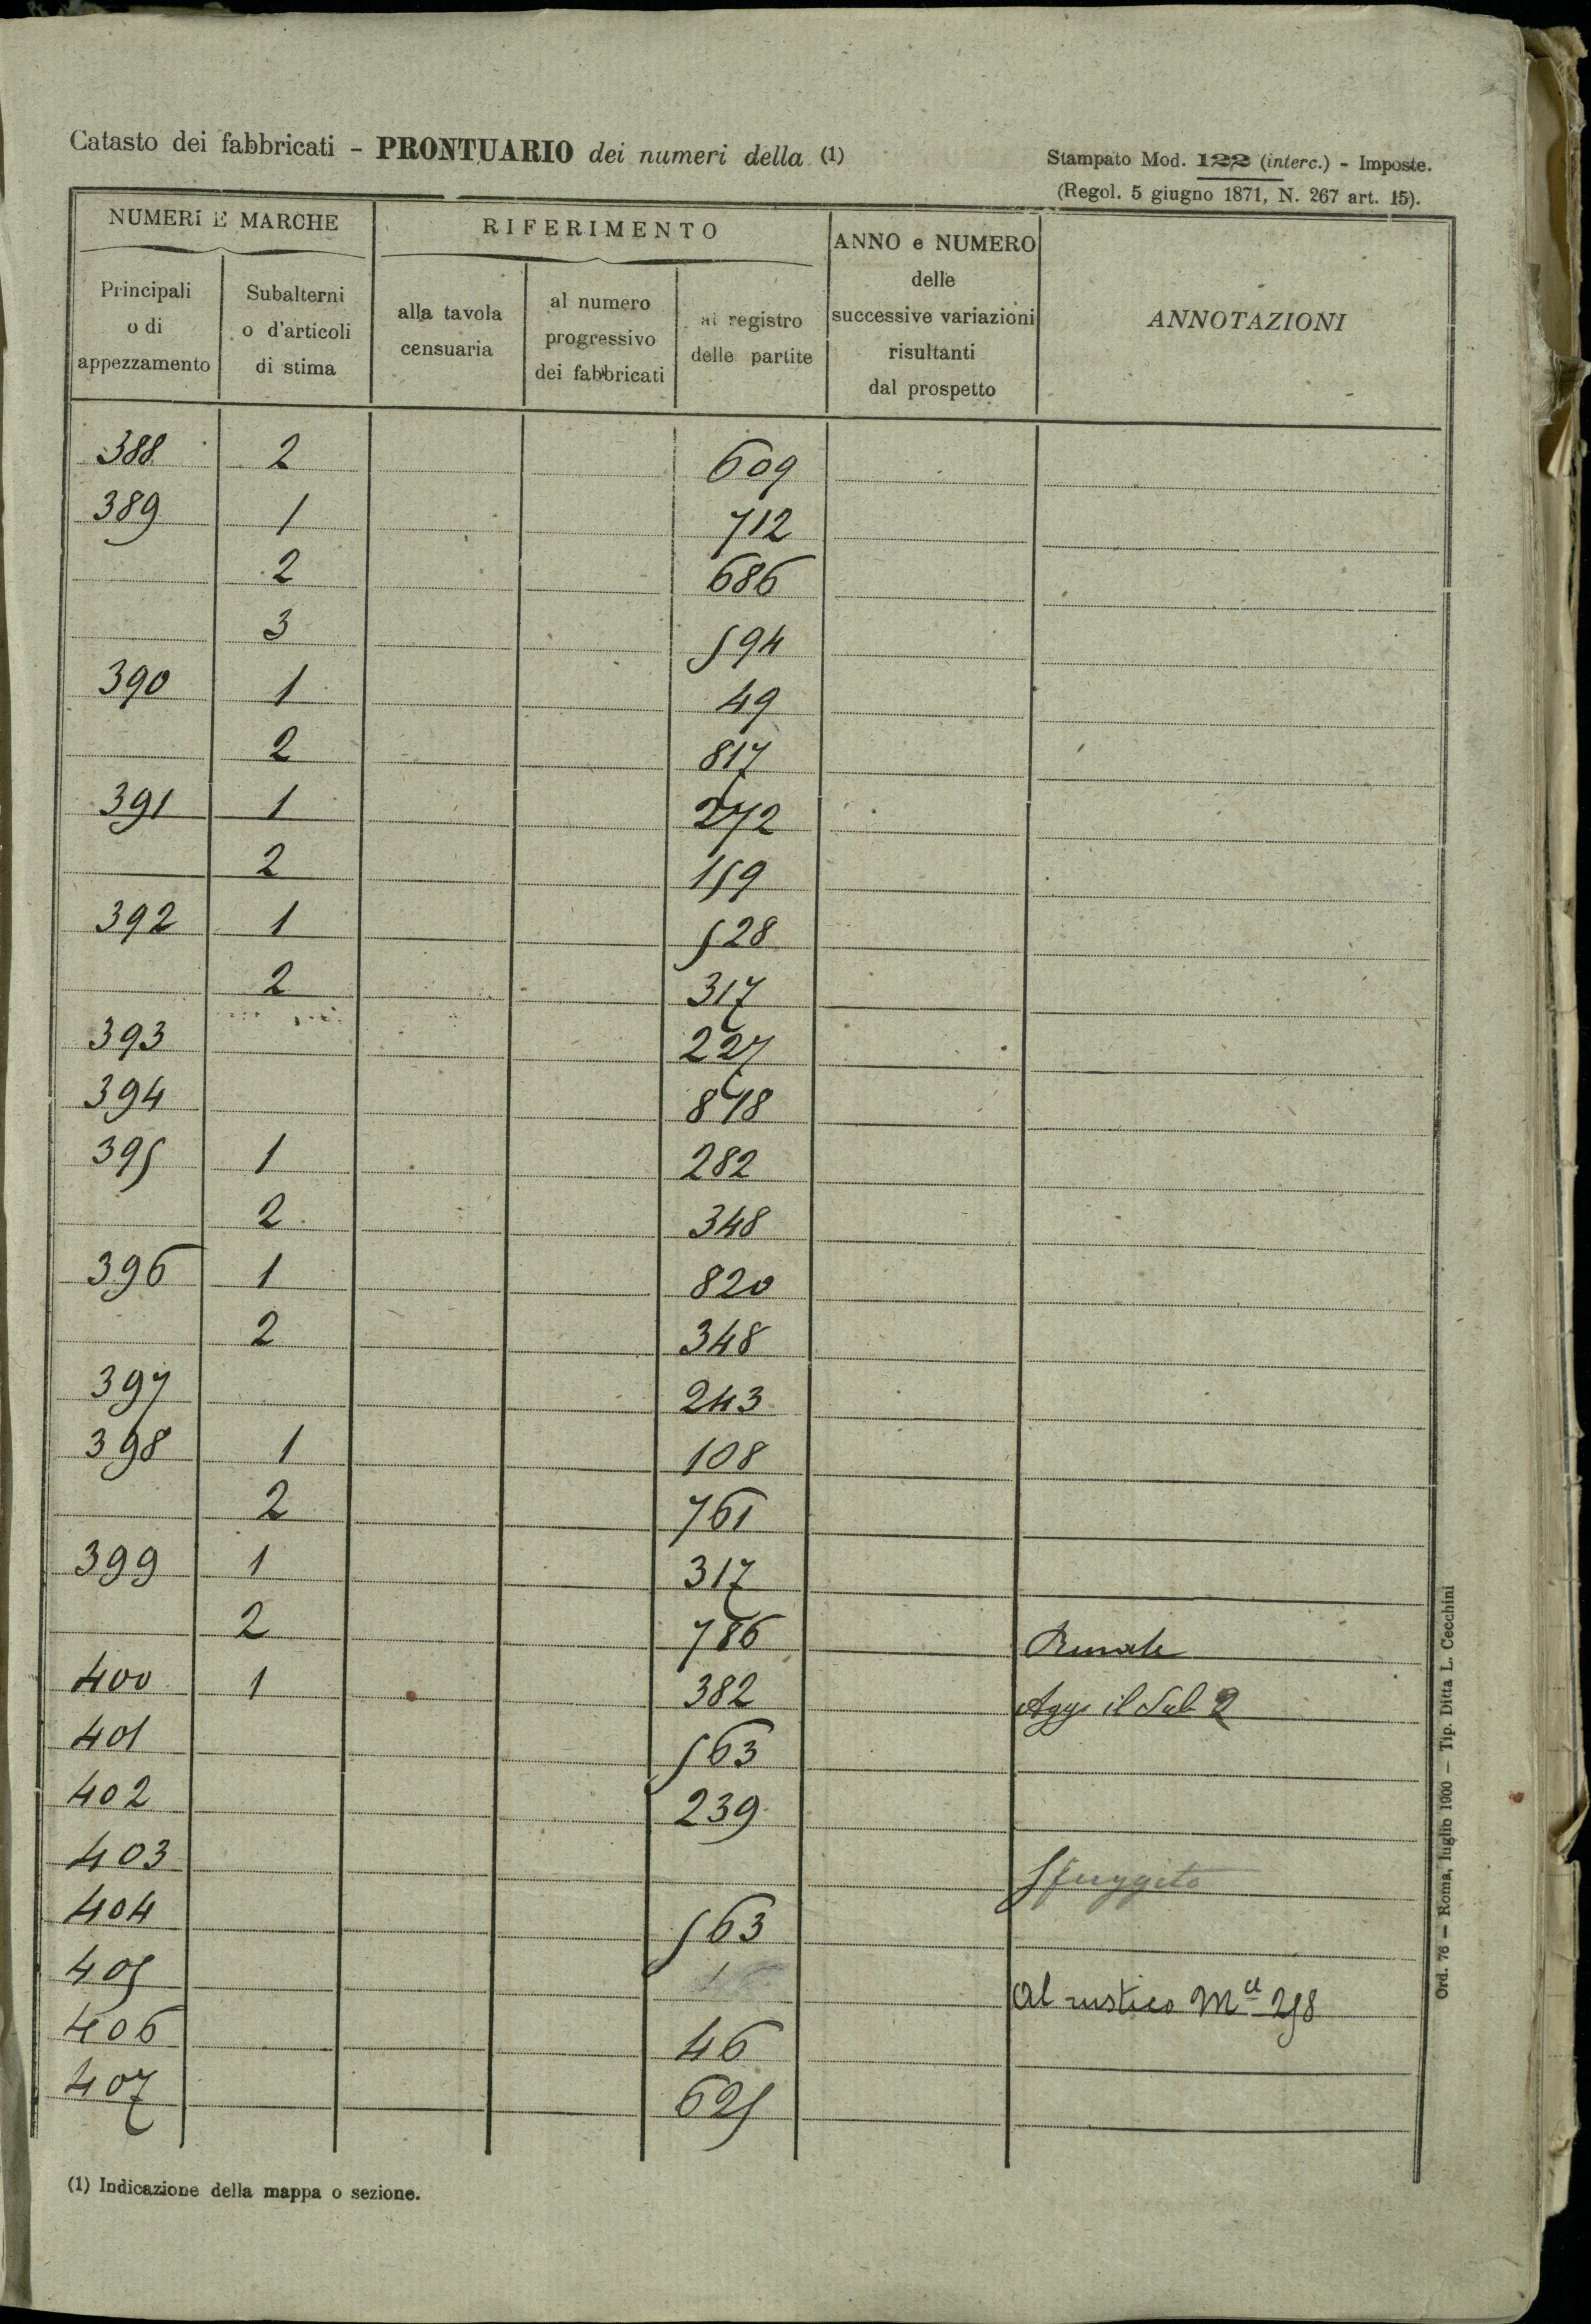 Catasto dei fabbricati - PRONTUARIO dei numeri della (1)
Stampato Mod. 122 (interc.) - Imposte.
(Regol. 5 giugno 1871, N. 267 art. 15).
NUMERI E MARCHE
RIFERIMENTO
ANNO e NUMERO
delle
successive variazioni
risultanti
dal prospetto
ANNOTAZIONI
Principali
o di
appezzamento
Subalterni
o d'articoli
di stima
alla tavola
censuaria
al numero
progressivo
dei fabbricati
al registro
delle partite
388 2 609
389 1 712
2 686
3 594
390 1 49
2 817
391 1 272
2 159
392 1 528
2 317
393 227
394 818
395 1 282
2 348
396 1 820
2 348
397 243
398 1 108
2 761
399 1 317
2 786 Rurale
400 1 382 Agg. il Sub 2
401 563
402 239
403 Sfuggito
404 563
405 Al rustico
406 46
407 625
(1) Indicazione della mappa o sezione.
Ord. 76 — Roma, luglio 1900 — Tip. Ditta L. Cecchini